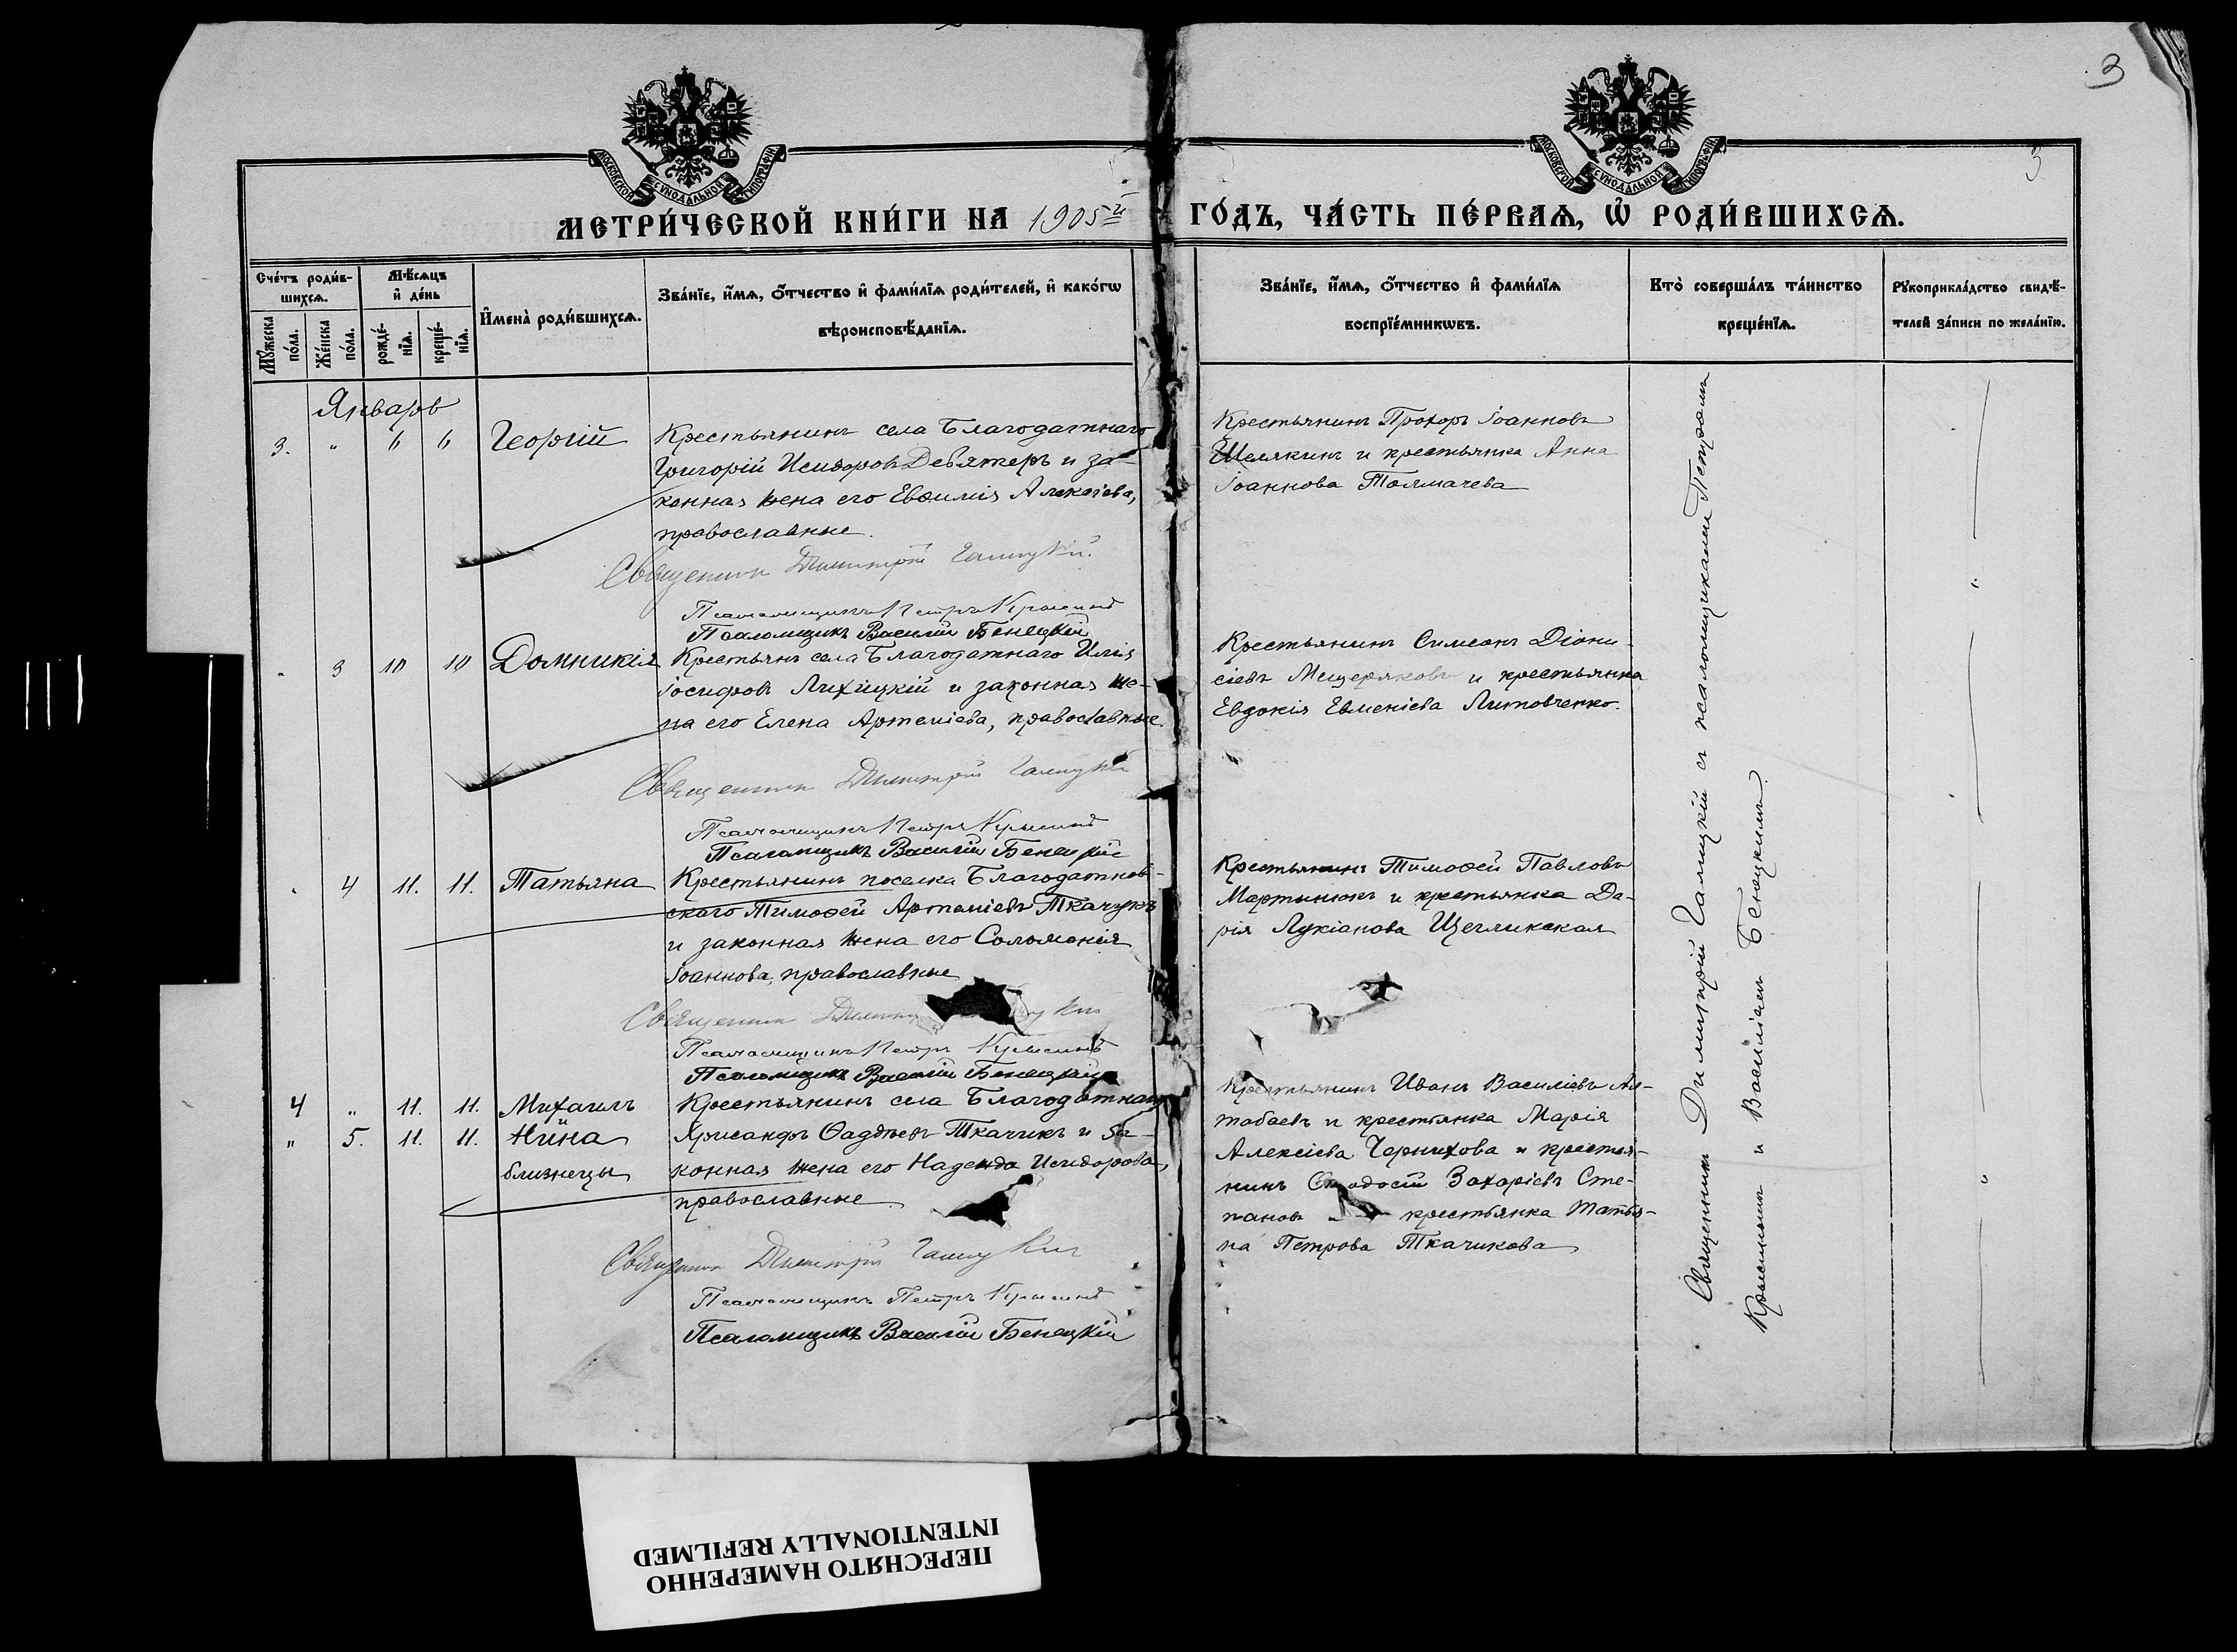 3
3
МОСКОВСКОЙ СѴНОДАЛЬНОЙ ТИПОГРАФІИ
МОСКОВСКОЙ СѴНОДАЛЬНОЙ ТИПОГРАФІИ
МЕТРИ́ЧЕСКОЙ КНИ́ГИ НА 1905й ГО́ДЪ, ЧА́СТЬ ПЕ́РВАѦ, Ѡ҆ РОДИ́ВШИХСѦ.
Сче́тъ роди́в-
шихсѧ.
Мꙋ́жеска по́ла.
Же́нска по́ла.
Мѣ́сѧцъ
и҆ де́нь
рожде́-
нїѧ.
креще́-
нїѧ.
И҆мена̀ роди́вшихсѧ.
Зва́нїе, и҆́мѧ, ѻ҆́тчество и҆ фами́лїѧ роди́телей, и҆ како́гѡ
вѣроисповѣ́данїѧ.
Зва́нїе, и҆́мѧ, ѻ҆́тчество и҆ фами́лїѧ
воспрїе́мникѡвъ.
Кто̀ соверша́лъ та́инство
креще́нїѧ.
Рꙋкоприкла́дство свидѣ́-
телей за́писи по жела́нїю.
Январь
3. " 6 6 Георгій
Крестьянинъ села Благодатнаго
Григорій Исидоровъ Дебяжеръ и за-
конная жена его Евѳимія Алексіева,
православные.
Священникъ Димитрій Галицкій.
Псаломщикъ Петръ Крысинъ
Псаломщикъ Василій Бенецкій
Крестьянинъ Прохоръ Іоанновъ
Шелякинъ и крестьянка Анна
Іоаннова Толмачева
" 3 10 10 Домникія
Крестьянъ села Благодатнаго Илія
Іосифовъ Лихицкій и законная же-
на его Елена Артеміева, православные.
Священникъ Димитрій Галицкій
Псаломщикъ Петръ Крысинъ
Псаломщикъ Василій Бенецкій
Крестьянинъ Симеонъ Діони-
сіевъ Мещеряковъ и крестьянка
Евдокія Евменіева Литовченко.
" 4 11. 11. Татьяна
Крестьянинъ поселка Благодатнов-
скаго Тимоѳей Артеміевъ Ткачукъ
и законная жена его Соломонія
Іоаннова, православные
Священникъ
Псаломщикъ Петръ Крысинъ
Псаломщикъ Василій Бенецкій
Крестьянинъ Тимоѳей Павловъ
Мартынюкъ и крестьянка Да-
рія Лукіанова Щеглинская
4 " 11. 11. Михаилъ
и
" 5. 11. 11. Нина
близнецы
Крестьянинъ села Благодатнаго
Хрисанфъ Ѳаддѣевъ Ткачикъ и за-
конная жена его Надежда Исидорова,
православные.
Священникъ Димитрій Галицкій
Псаломщикъ Петръ Крысинъ
Псаломщикъ Василій Бенецкій
Крестьянинъ Иванъ Василіевъ Ал-
табаевъ и крестьянка Марія
Алексіева Чернихова и крестья-
нинъ Захаріевъ Сте-
пановъ и крестьянка Татья-
на Петрова Ткачикова
Священникъ Димитрій Галицкій съ псаломщиками Петромъ
Крысинымъ и Василіемъ Бенецкимъ.
ПЕРЕСНЯТО НАМЕРЕННО
INTENTIONALLY REFILMED